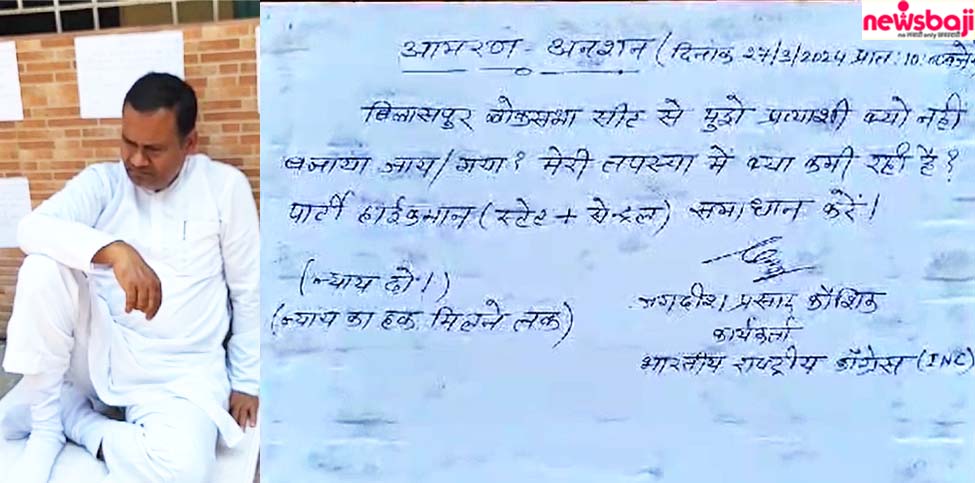 newsbaji
ना नकली only असरदारी
आमरण - अनशन (दिनांक 27/3/2024 प्रात: 10: बजेसे
बिलासपुर लोकसभा सीट से मुझे प्रत्याशी क्यो नही
बनाया जाय/गया? मेरी तपस्या में क्या कमी रही है?
पार्टी हाईकमान (स्टेट + सेन्ट्रल) समाधान करें।
(न्याय दो।)
(न्याय का हक मिलने तक)
जगदीश प्रसाद कौशिक
कार्यकर्ता
भारतीय राष्ट्रीय काँग्रेस (INC)